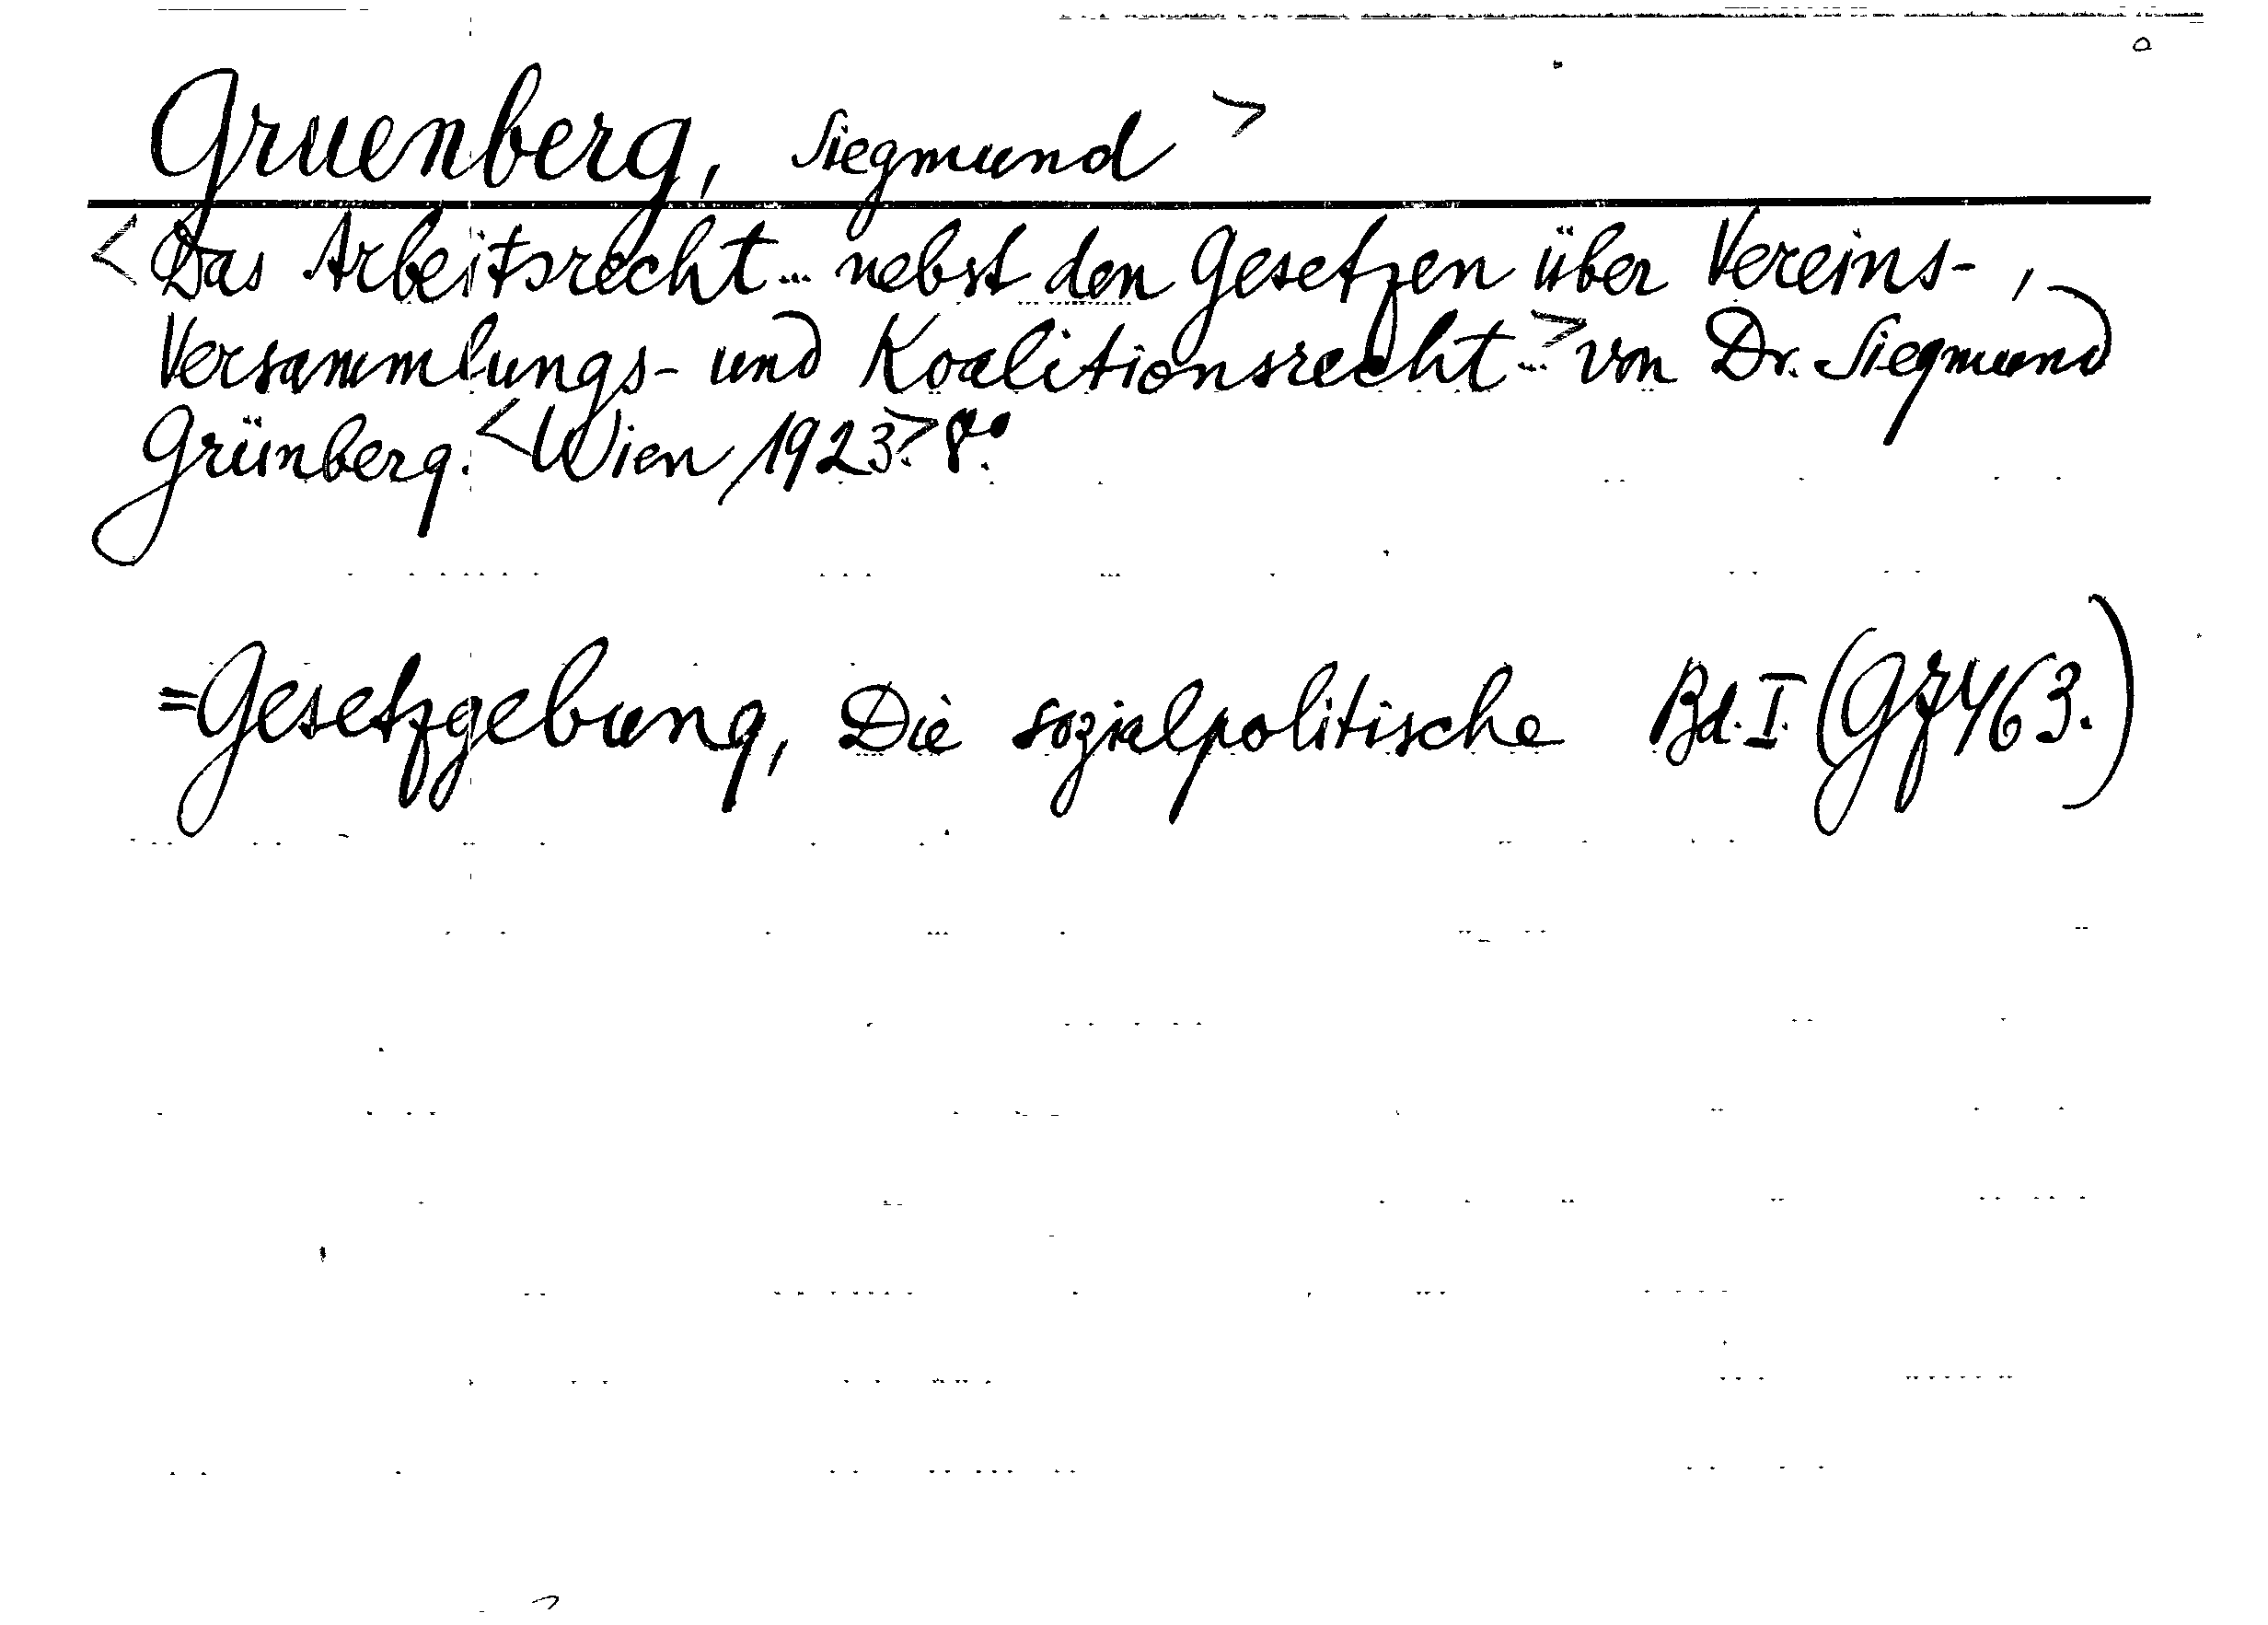 Gruenberg, Siegmund >
< Das Arbeitsrecht... nebst den Gesetzen über Vereins-,
Versammlungs- und Koalitionsrecht...> von Dr. Siegmund
Grünberg. <Wien 1923.> 8°.
=Gesetzgebung, Die sozialpolitische Bd. I. (Gz 463.)